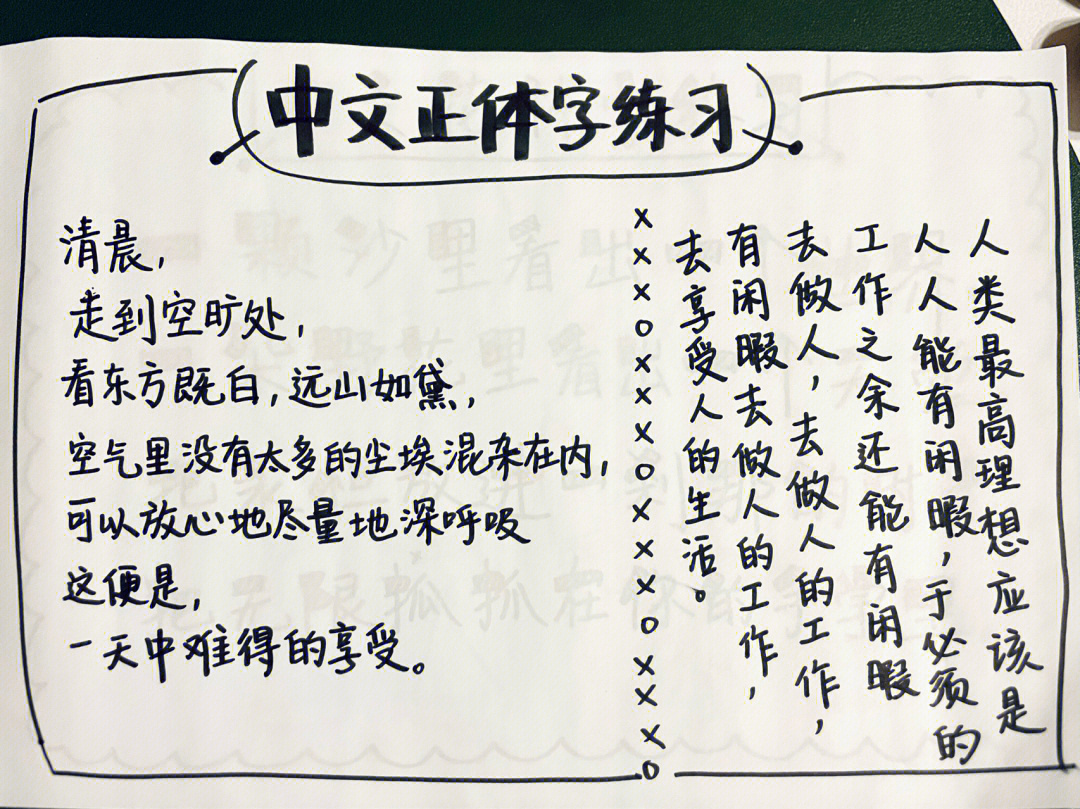 中文正体字练习
清晨，
走到空旷处，
看东方既白，远山如黛，
空气里没有太多的尘埃混杂在内，
可以放心地尽量地深呼吸
这便是，
一天中难得的享受。
人类最高理想应该是
人人能有闲暇，于必须的
工作之余还能有闲暇
去做人，去做人的工作，
有闲暇去做人的工作，
去享受人的生活。